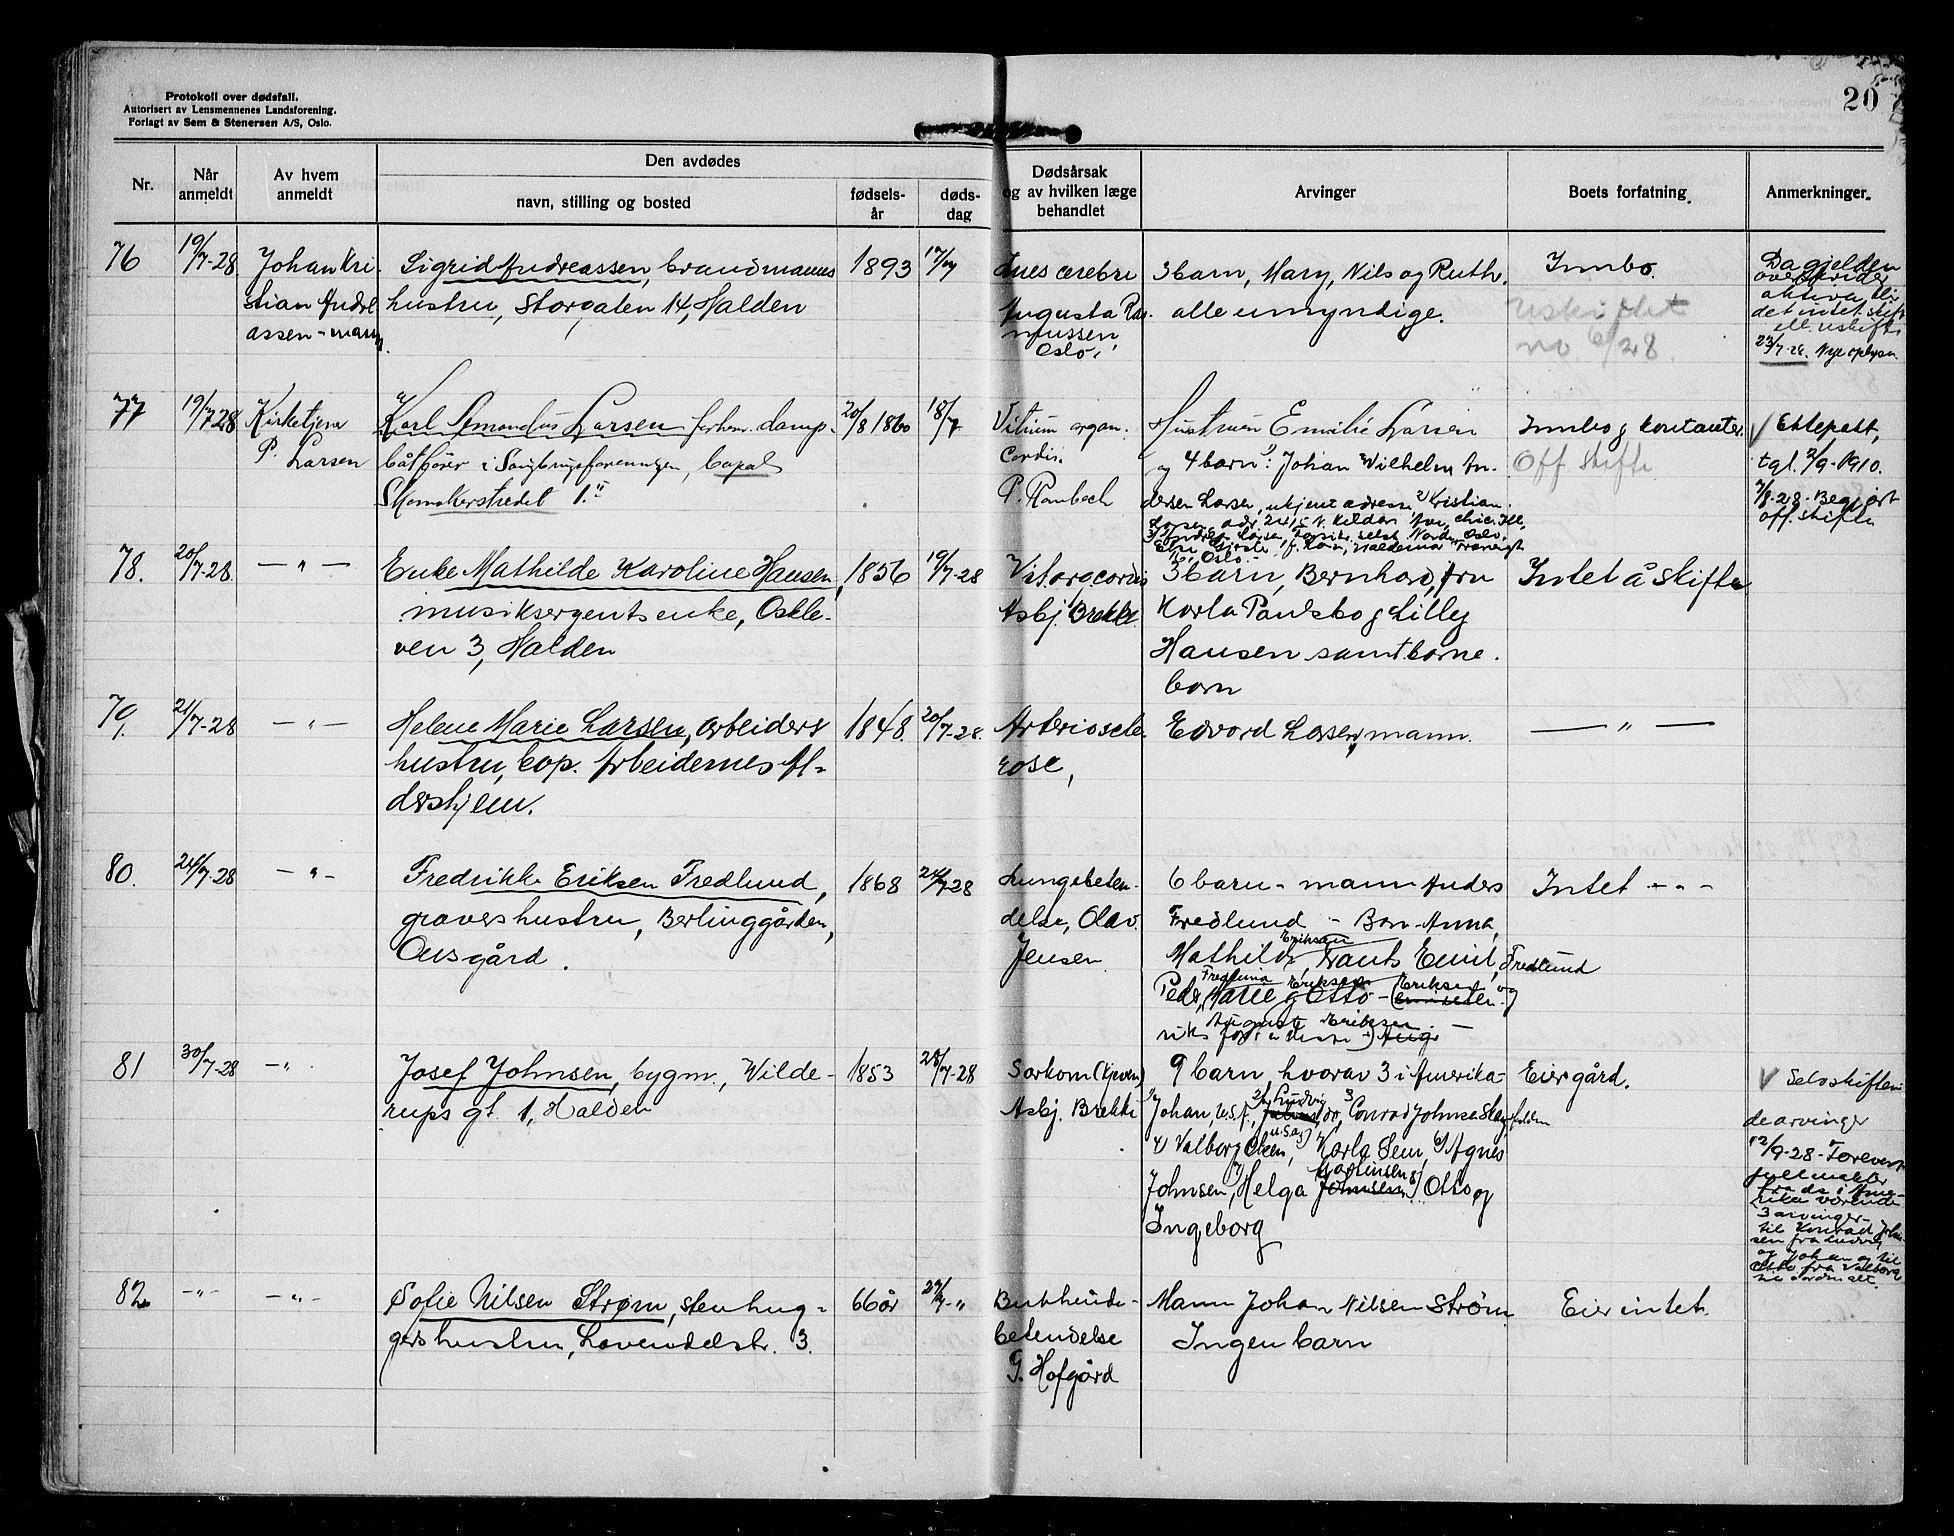 Protokoll over dødsfall.
Autorisert av Lensmennenes Landsforening.
Forlagt av Sem & Stenersen A/S, Oslo.
20
Nr.
Når anmeldt
Av hvem anmeldt
Den avdødes
navn, stilling og bosted
fødsels-
år
døds-
dag
Dødsårsak
og av hvilken læge
behandlet
Arvinger
Boets forfatning
Anmerkninger.
76
19/7-28
Johan Kri-
stian Andre
assen - mann
Sigrid Andreassen, brandmanns
hustru, Storgaten 14, Halden
1893
17/7
Lues cerebri
Augusta Ras-
mussen
Oslo,
3 barn, Mary, Nils og Ruth.
alle umyndige.
Innbo.
Uskiftet
Da gjelden
overskrider
aktiva, bli
det intet skift
ell. uskifte
23/7-28. Nye oplysn
77
19/7 28
Kirketjener
P. Larsen
Karl Lemandus Larsen forhenv. damp-
båtfører i Saugbrugsforeningen,
Skomakerstredet 1.
20/8 1860
18/7
Vitium organ.
Cordis.
P. Rambech
Hustruen Emilie Larsen
og 4 barn: 1) Johan Wilhelm An-
dersen Larsen, ukjent adresse 2) Kristian
Larsen, adr. 2415 N. Kildar Ave, Chic. Ill,
Oslo.
Innbo og kontanter.
Off. skifte
√ Ektepakt,
tgl. 2/9-1910.
7/8-28- Begjært
off. skifte
78.
20/7-28.
— " —
Enke Mathilde Karoline Hansen,
musiksergents enke, Oskle-
ven 3, Halden
1856
19/7-28
Vit org cordis
Asbj. Brekke
3 barn, Bernhard, fru
Karla Paulsbo g Lilly
Hansen samt barne-
barn
Intet å skifte
79.
21/7-28
— " —
Helene Marie Larsen, arbeiders
hustru, cop. Arbeidernes Al-
dershjem.
1848.
20/7-28.
Arterioscle-
rose,
Edvard Larsen, mann.
— " —
80.
24/7-28
— " -
Fredrikke Eriksen Fredlund,
gravers hustru, Berlinggården,
Ousgård.
1868
24/7-28
Lungebeten-
delse, Olav
Jensen
6 barn - mann Anders
Fredlund - Barn - Anna,
Eriksen
Mathilde, Frants Emil, Fredlund
Fredlund Eriksen Eriksen og
Peder, Marie g Otto -
August Eriksen
81
30/7-28
— " .
Josef Johnsen, bygm., Wilde-
rups gt. 1, Halden
1853
28/7-28
Sarkom (kjeven)
Asbj. Brekke
9 barn, hvorav 3 i Amerika-
1 Johan, U.S.A., 2) Ludvig do, 3 Conrad Johnsen
U.S.A.)
4) Valborg Olsen, 5) Karla Sem, 6) Agnes
Martinsen 8)
Johnsen, 7) Helga Johnsen Otto og
Ingeborg
Eier gård.
√ Selvskiften-
de arvinger
12/9-28 - Forevist
fullmakter
fra de i Ame-
rika værende
3 arvinger -
til Konrad John-
sen fra Ludvig
og Johan og til
Otto fra Valborg
82
— " —
— " -
Sofie Nilsen Strøm, stenhug-
gers hustru, Lavendelstr. 3.
66 år
27/7-"
Bukhinde-
betendelse
G. Hofgård
Mann Johan Nilsen Strøm
Ingen barn
Eier intet.